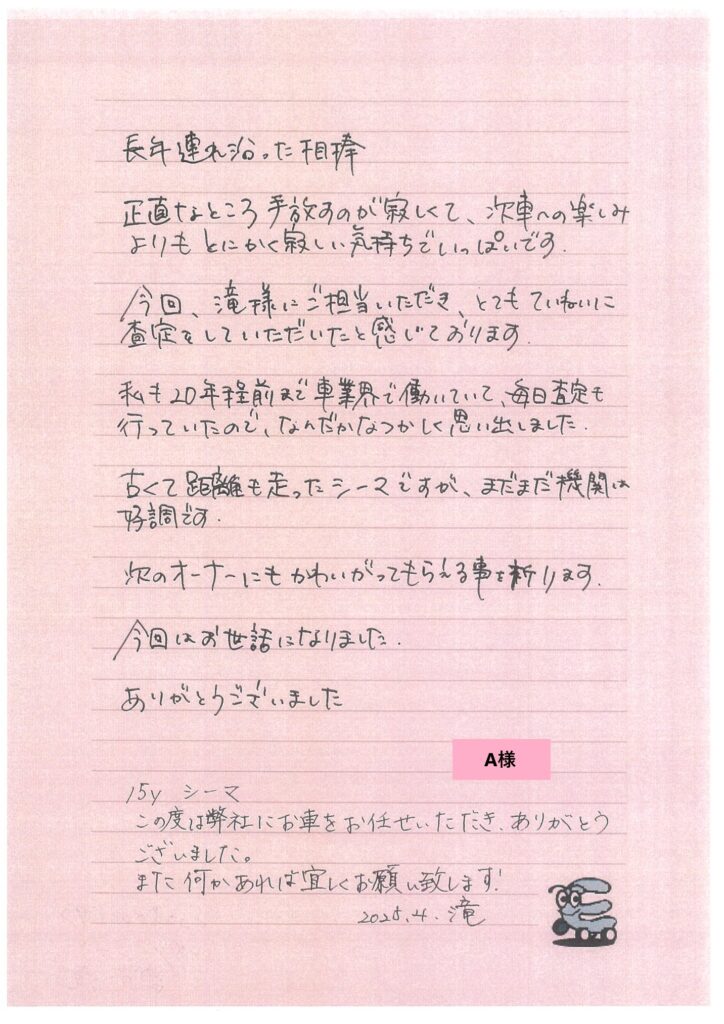 長年連れ沿った相棒
正直なところ手放すのが寂しくて、次車への楽しみ
よりもとにかく寂しい気持ちでいっぱいです.
今回、滝様にご担当いただき、とてもていねいに
査定をしていただいたと感じております.
私も20年程前まで車業界で働いていて、毎日査定も
行っていたので、なんだかなつかしく思い出しました.
古くて距離も走ったシーマですが、まだまだ機関は
好調です.
次のオーナーにもかわいがってもらえる事を祈ります.
今回はお世話になりました.
ありがとうございました
A様
15y シーマ
この度は弊社にお車をお任せいただき、ありがとう
ございました。
また何かあれば宜しくお願い致します!
2025.4.滝